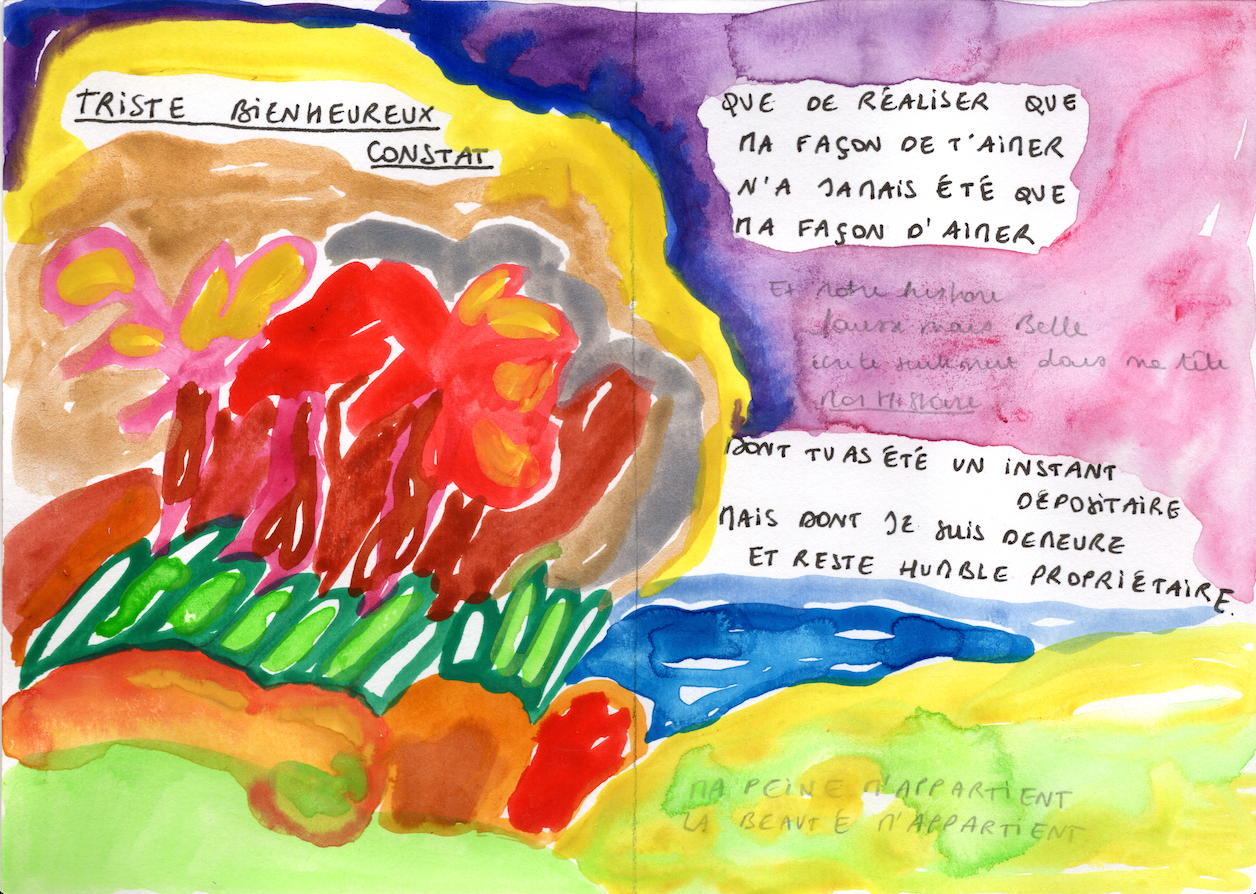 TRISTE BIENHEUREUX
CONSTAT
QUE DE RÉALISER QUE
MA FAÇON DE T'AIMER
N'A JAMAIS ÉTÉ QUE
MA FAÇON D'AIMER
Et notre histoire
fausse mais Belle
écrite seulement dans ma tête
Mon Histoire
DONT TU AS ÉTÉ UN INSTANT
DÉPOSITAIRE
MAIS DONT JE SUIS DEMEURE
ET RESTE HUMBLE PROPRIÉTAIRE.
MA PEINE M'APPARTIENT
LA BEAUTE M'APPARTIENT